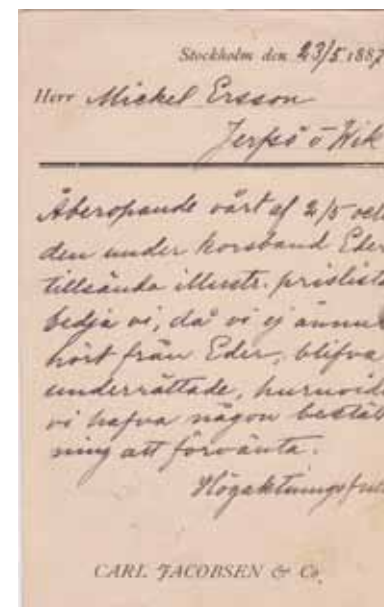 Stockholm den 23/5 1887
Herr Mickel Ersson
Jerfsö o Wik
Åberopande vårt af 2/5 och
den under korsband Eder
tillsända illustr. prislista
bedja vi, då vi ej ännu
hört från Eder, blifva
underrättade, huruvida
vi hafva någon beställ
ning att förvänta.
Högaktningsfull
CARL JACOBSEN & Co.